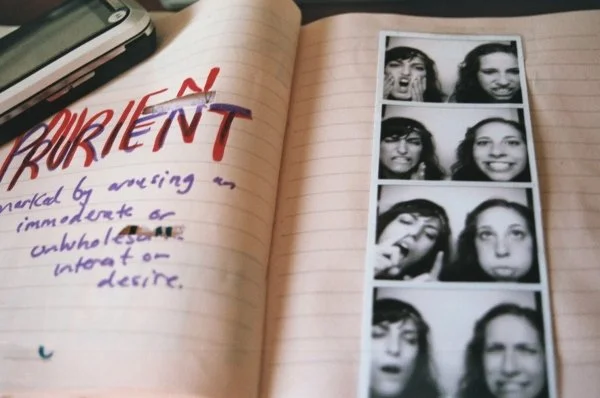 PRURIENT
marked by arousing an
immoderate or
unwholesome
interest or
desire.